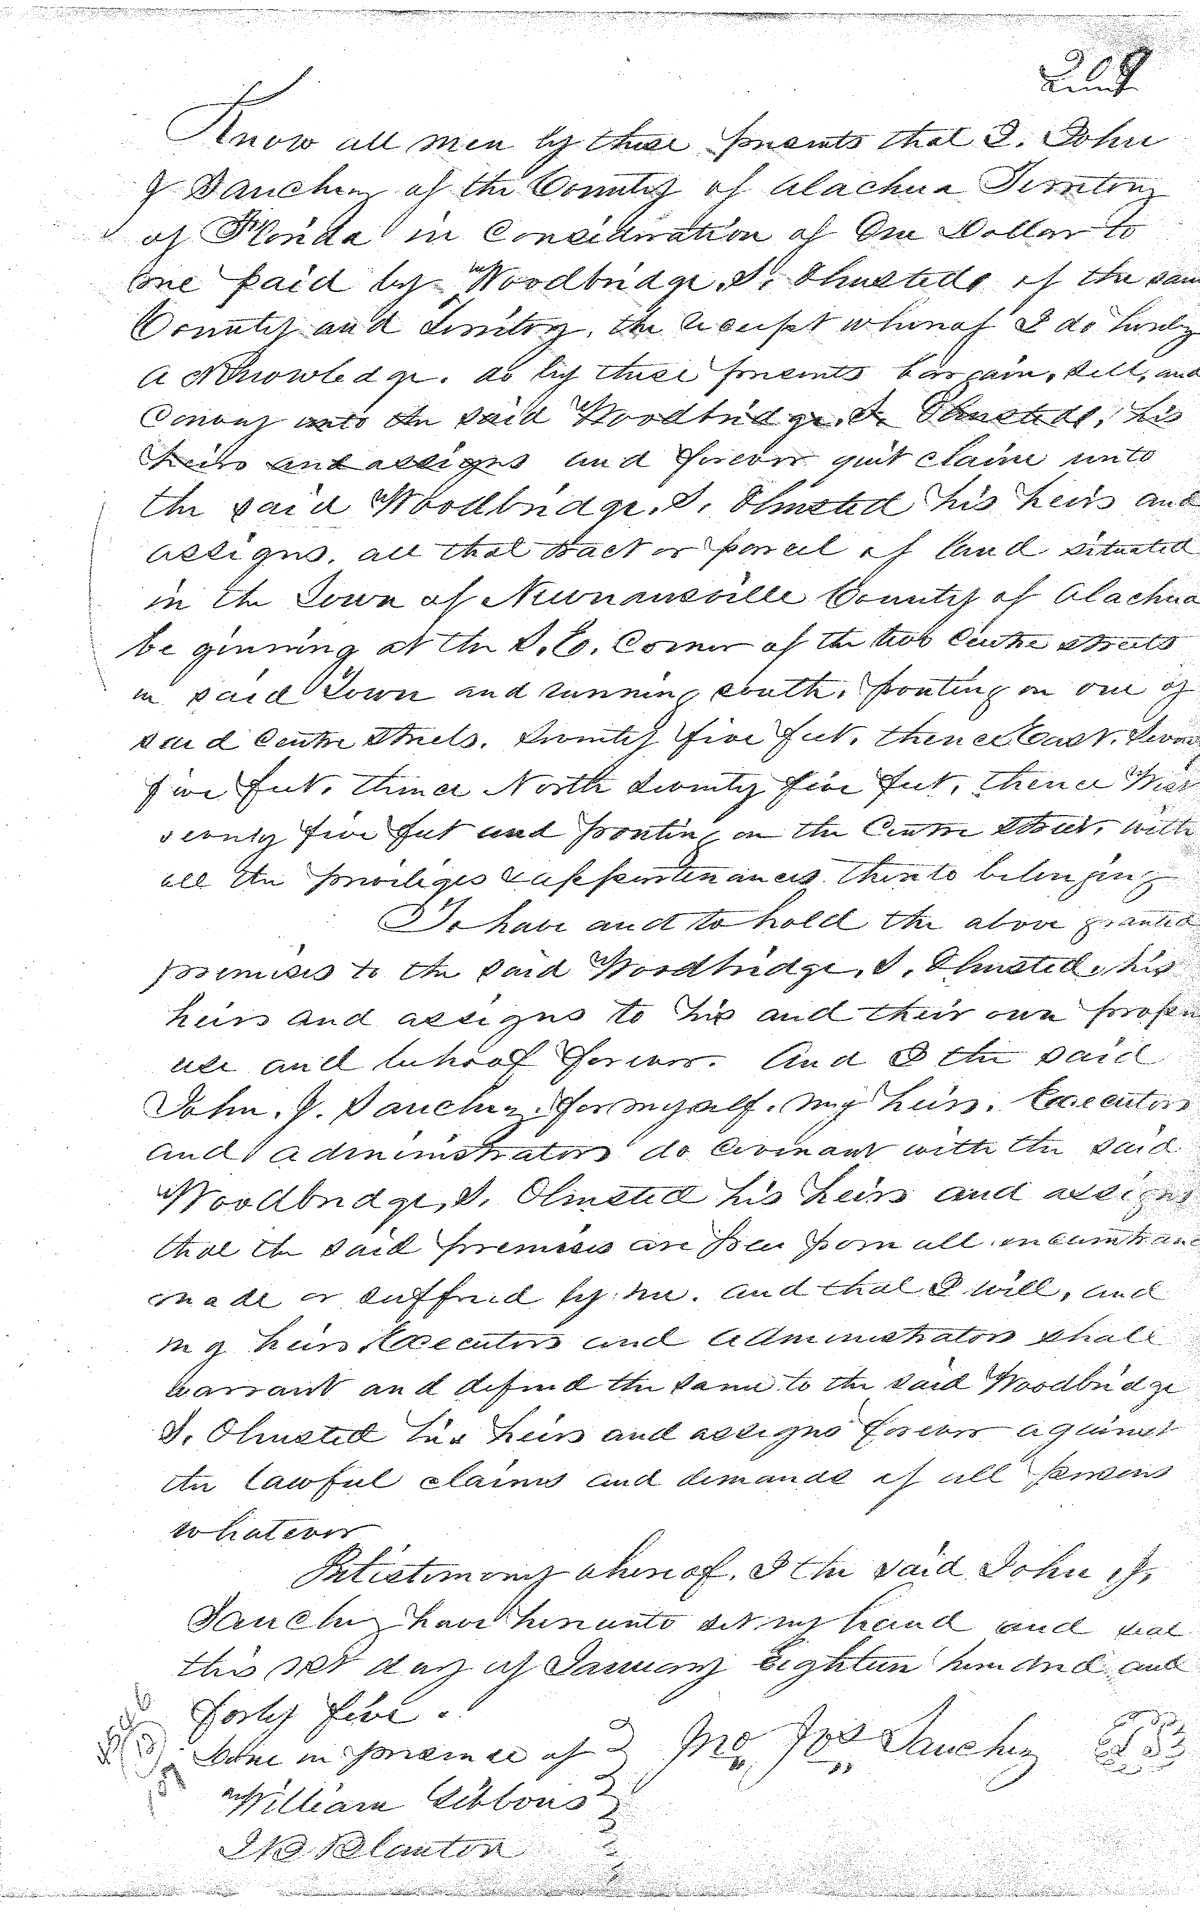 209
Know all men by these presents that I. John
J Sanchez of the County of Alachua Territory
of Florida in Consideration of One Dollar to
me paid by Woodbridge. S. Olmsteds of the same
County and Territory, the receipt whereof I do hereby
acknowledge. do by these presents bargain, sell, and
Convey unto the said Woodbridge. S. Olmsteds, his
heirs and assigns and forever quit claim unto
the said Woodbridge. S. Olmsted his heirs and
assigns. all that tract or parcel of land situated
in the Town of Newnansville County of Alachua
beginning at the S. E. Corner of the two Centre streets
in said Town and running south, fronting on one of
said Centre Streets. Seventy five feet, thence East,
five feet, thence North Seventy five feet, thence West
seventy five feet and fronting on the Centre Street, with
all the priviliges & appertenances thereto belonging
To have and to hold the above granted
premises to the said Woodbridge, S, Olmsted, his
heirs and assigns to his and their own proper
use and behoof forever. And I the said
John. J. Sanchez. for myself, my heirs. Executors
and administrators do covenant with the said
Woodbridge, S. Olmsted his heirs and assigns
that the said premises are free from all incumbrance
made or suffered by me. and that I will, and
my heirs Executors and administrators shall
warrant and defend the same to the said Woodbridge
S. Olmsted his heirs and assigns forever against
the lawful claims and demands of all persons
whatever
In testimony whereof. I the said John J,
Sanchez have hereunto set my hand and seal
this 1st day of January Eighteen hundred and
forty five.
Done in presence of Jno Jos Sanchez LS
William Gibbons
J B Blanton